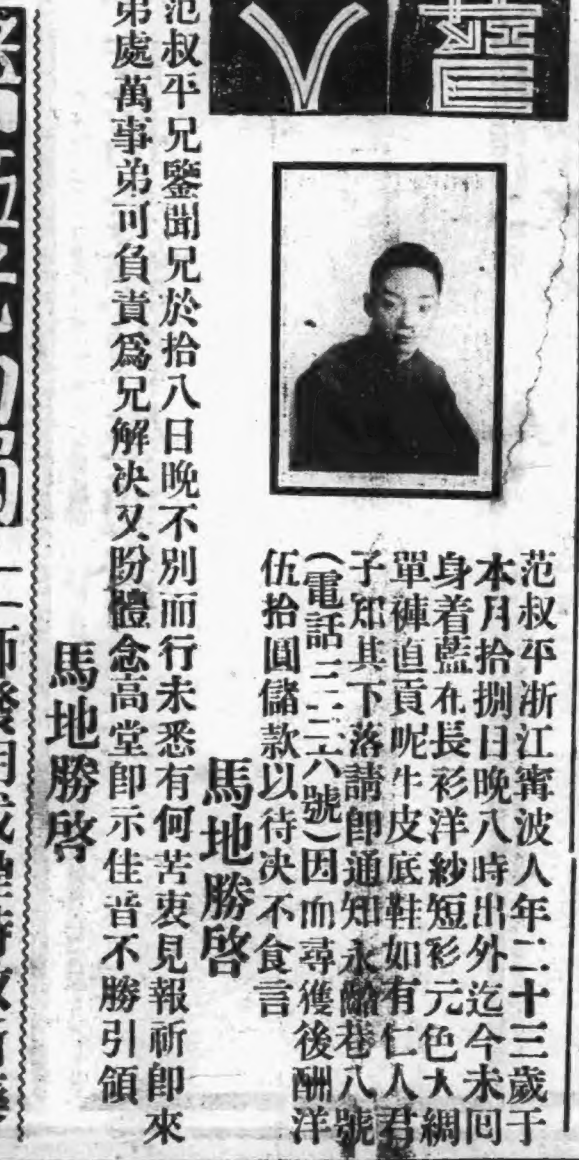 人
范叔平浙江寗波人年二十三歲于
本月拾捌日晚八時出外迄今未回
身着藍布長衫洋紗短衫元色大綢
單褲直貢呢牛皮底鞋如有仁人君
子知其下落請即通知永巷八號
(電話三二六號)因而尋獲後酬洋
伍拾圓儲款以待决不食言
馬地勝啓
范叔平兄鑒聞兄於拾八日晚不別而行未悉有何苦衷見報祈即來
弟處萬事弟可負責爲兄解决又盼體念高堂即示佳音不勝引領
馬地勝啓